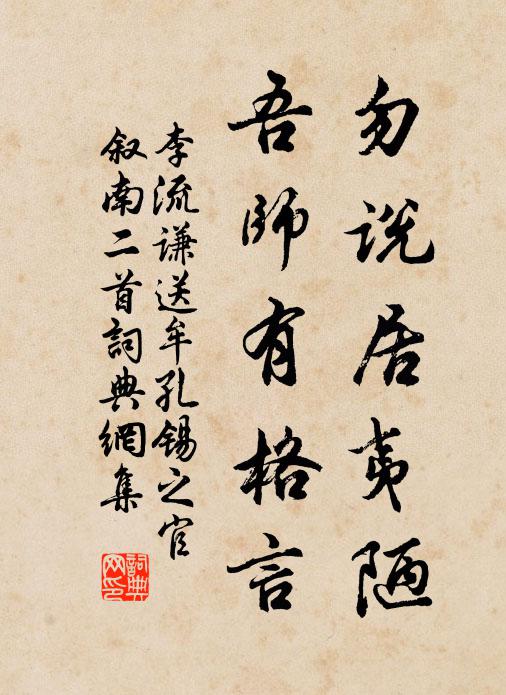 勿说居夷陋
吾師有格言
李流谦送牟孔锡之官
叙南二首詞典網集
詞典
网印